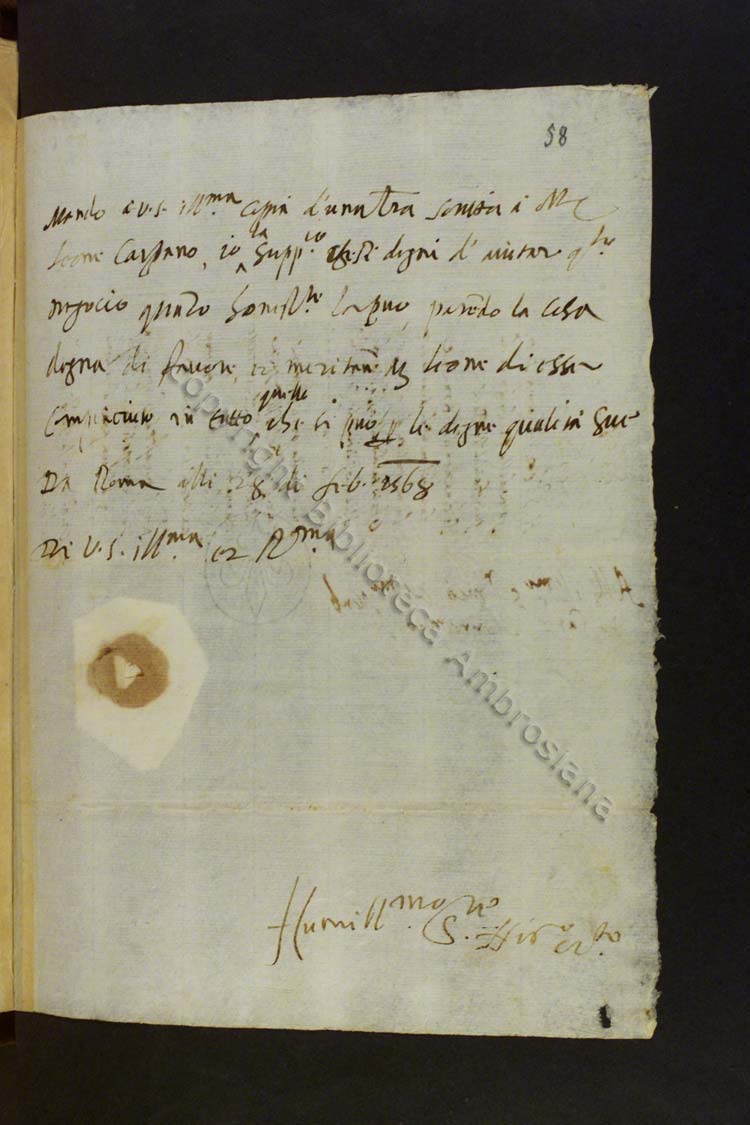 58
Mando a V.S. Ill.ma copia d'una lra scritta a M
leone Carpano, io la supp.co che si degni d'aiutar q.to
negocio quãto honest.te la può, parẽdo la cosa
degna di favore, et meritãdo M leone di esser
compiaciuto in tutto quello che si può p le degne qualità sue
Da Roma alli 28 di feb. 1568
Di V.S. Ill.ma et R.ma
Humill.mo
S.
copyright Biblioteca Ambrosiana